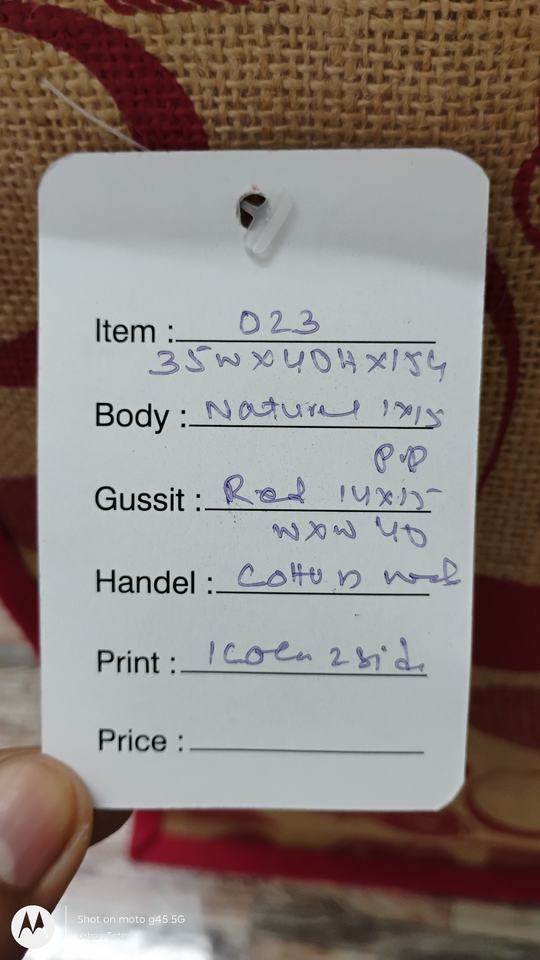 Item : 023
35WX40HX15G
Body : Natural 1X15
P.P
Gussit : Red 14X15
WXW 40
Handel : Cotton web
Print : 1 Color 2 Side
Price :
Shot on moto g45 5G